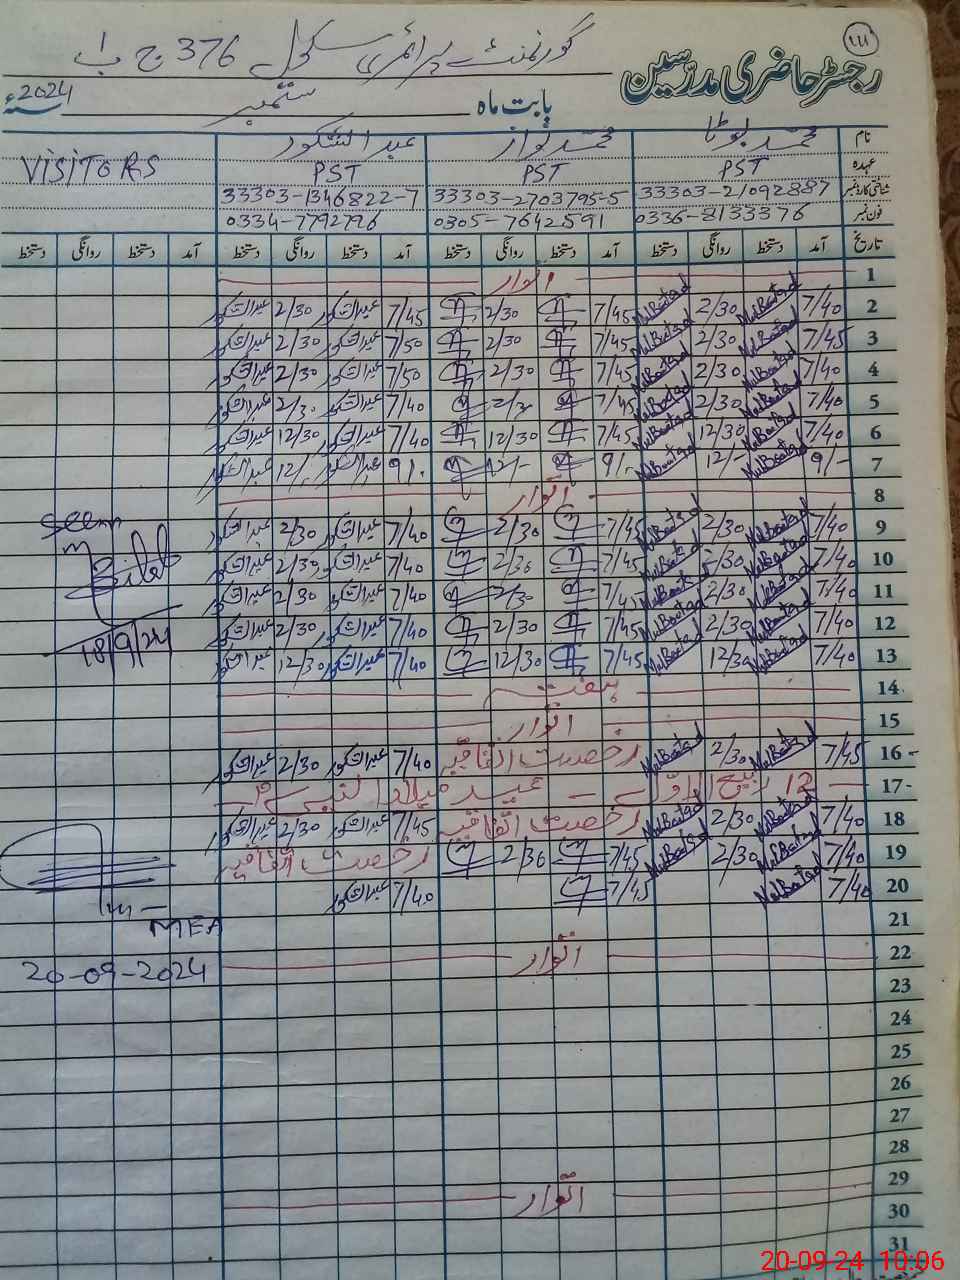 گورنمنٹ پرائمری سکول 376 ج ب
رجسٹر حاضری مدرسین
بابت ماہ ستمبر 2024
نام محمد بوٹا محمد نواز عبدالشکور VISITORS
عہدہ PST PST PST
شناختی کارڈ نمبر 33303-21092887 33303-2703795-5 33303-1346822-7
فون نمبر 0336-8133376 0305-7642591 0334-7792796
تاریخ آمد دستخط روانگی دستخط آمد دستخط روانگی دستخط آمد دستخط روانگی دستخط آمد دستخط روانگی دستخط
1 اتوار
2 7/40 2/30 7/45 2/30 7/45 عبدالشکور 2/30 عبدالشکور
3 7/45 2/30 7/45 2/30 7/50 عبدالشکور 2/30 عبدالشکور
4 7/40 2/30 7/45 2/30 7/50 عبدالشکور 2/30 عبدالشکور
5 7/40 2/30 7/45 7/40 عبدالشکور 2/30 عبدالشکور
6 7/40 12/30 7/45 12/30 7/40 عبدالشکور 12/30 عبدالشکور
7 9/- 12/- 9/- 12/- 9/- عبدالشکور 12/- عبدالشکور
8 اتوار
9 7/40 2/30 7/45 2/30 7/40 عبدالشکور 2/30 عبدالشکور seen
10 7/40 2/30 7/45 2/30 7/40 عبدالشکور 2/30 عبدالشکور
11 7/40 2/30 7/45 2/30 7/40 عبدالشکور 2/30 عبدالشکور
12 7/40 2/30 7/45 2/30 7/40 عبدالشکور 2/30 عبدالشکور
13 7/40 12/30 7/45 12/30 7/40 عبدالشکور 12/30 عبدالشکور 18/9/24
14 ہفتہ
15 اتوار
16 7/45 2/30 رخصت اتفاقیہ 7/40 عبدالشکور 2/30 عبدالشکور
17 12 ربیع الاول عید میلاد النبی
18 7/40 2/30 رخصت اتفاقیہ 7/45 عبدالشکور 2/30 عبدالشکور
19 7/40 2/30 7/45 2/30 رخصت اتفاقیہ
20 7/40 7/45 7/40 عبدالشکور
21 MEA
22 اتوار 20-09-2024
23
24
25
26
27
28
29 اتوار
30
31
20-09-24 10:06